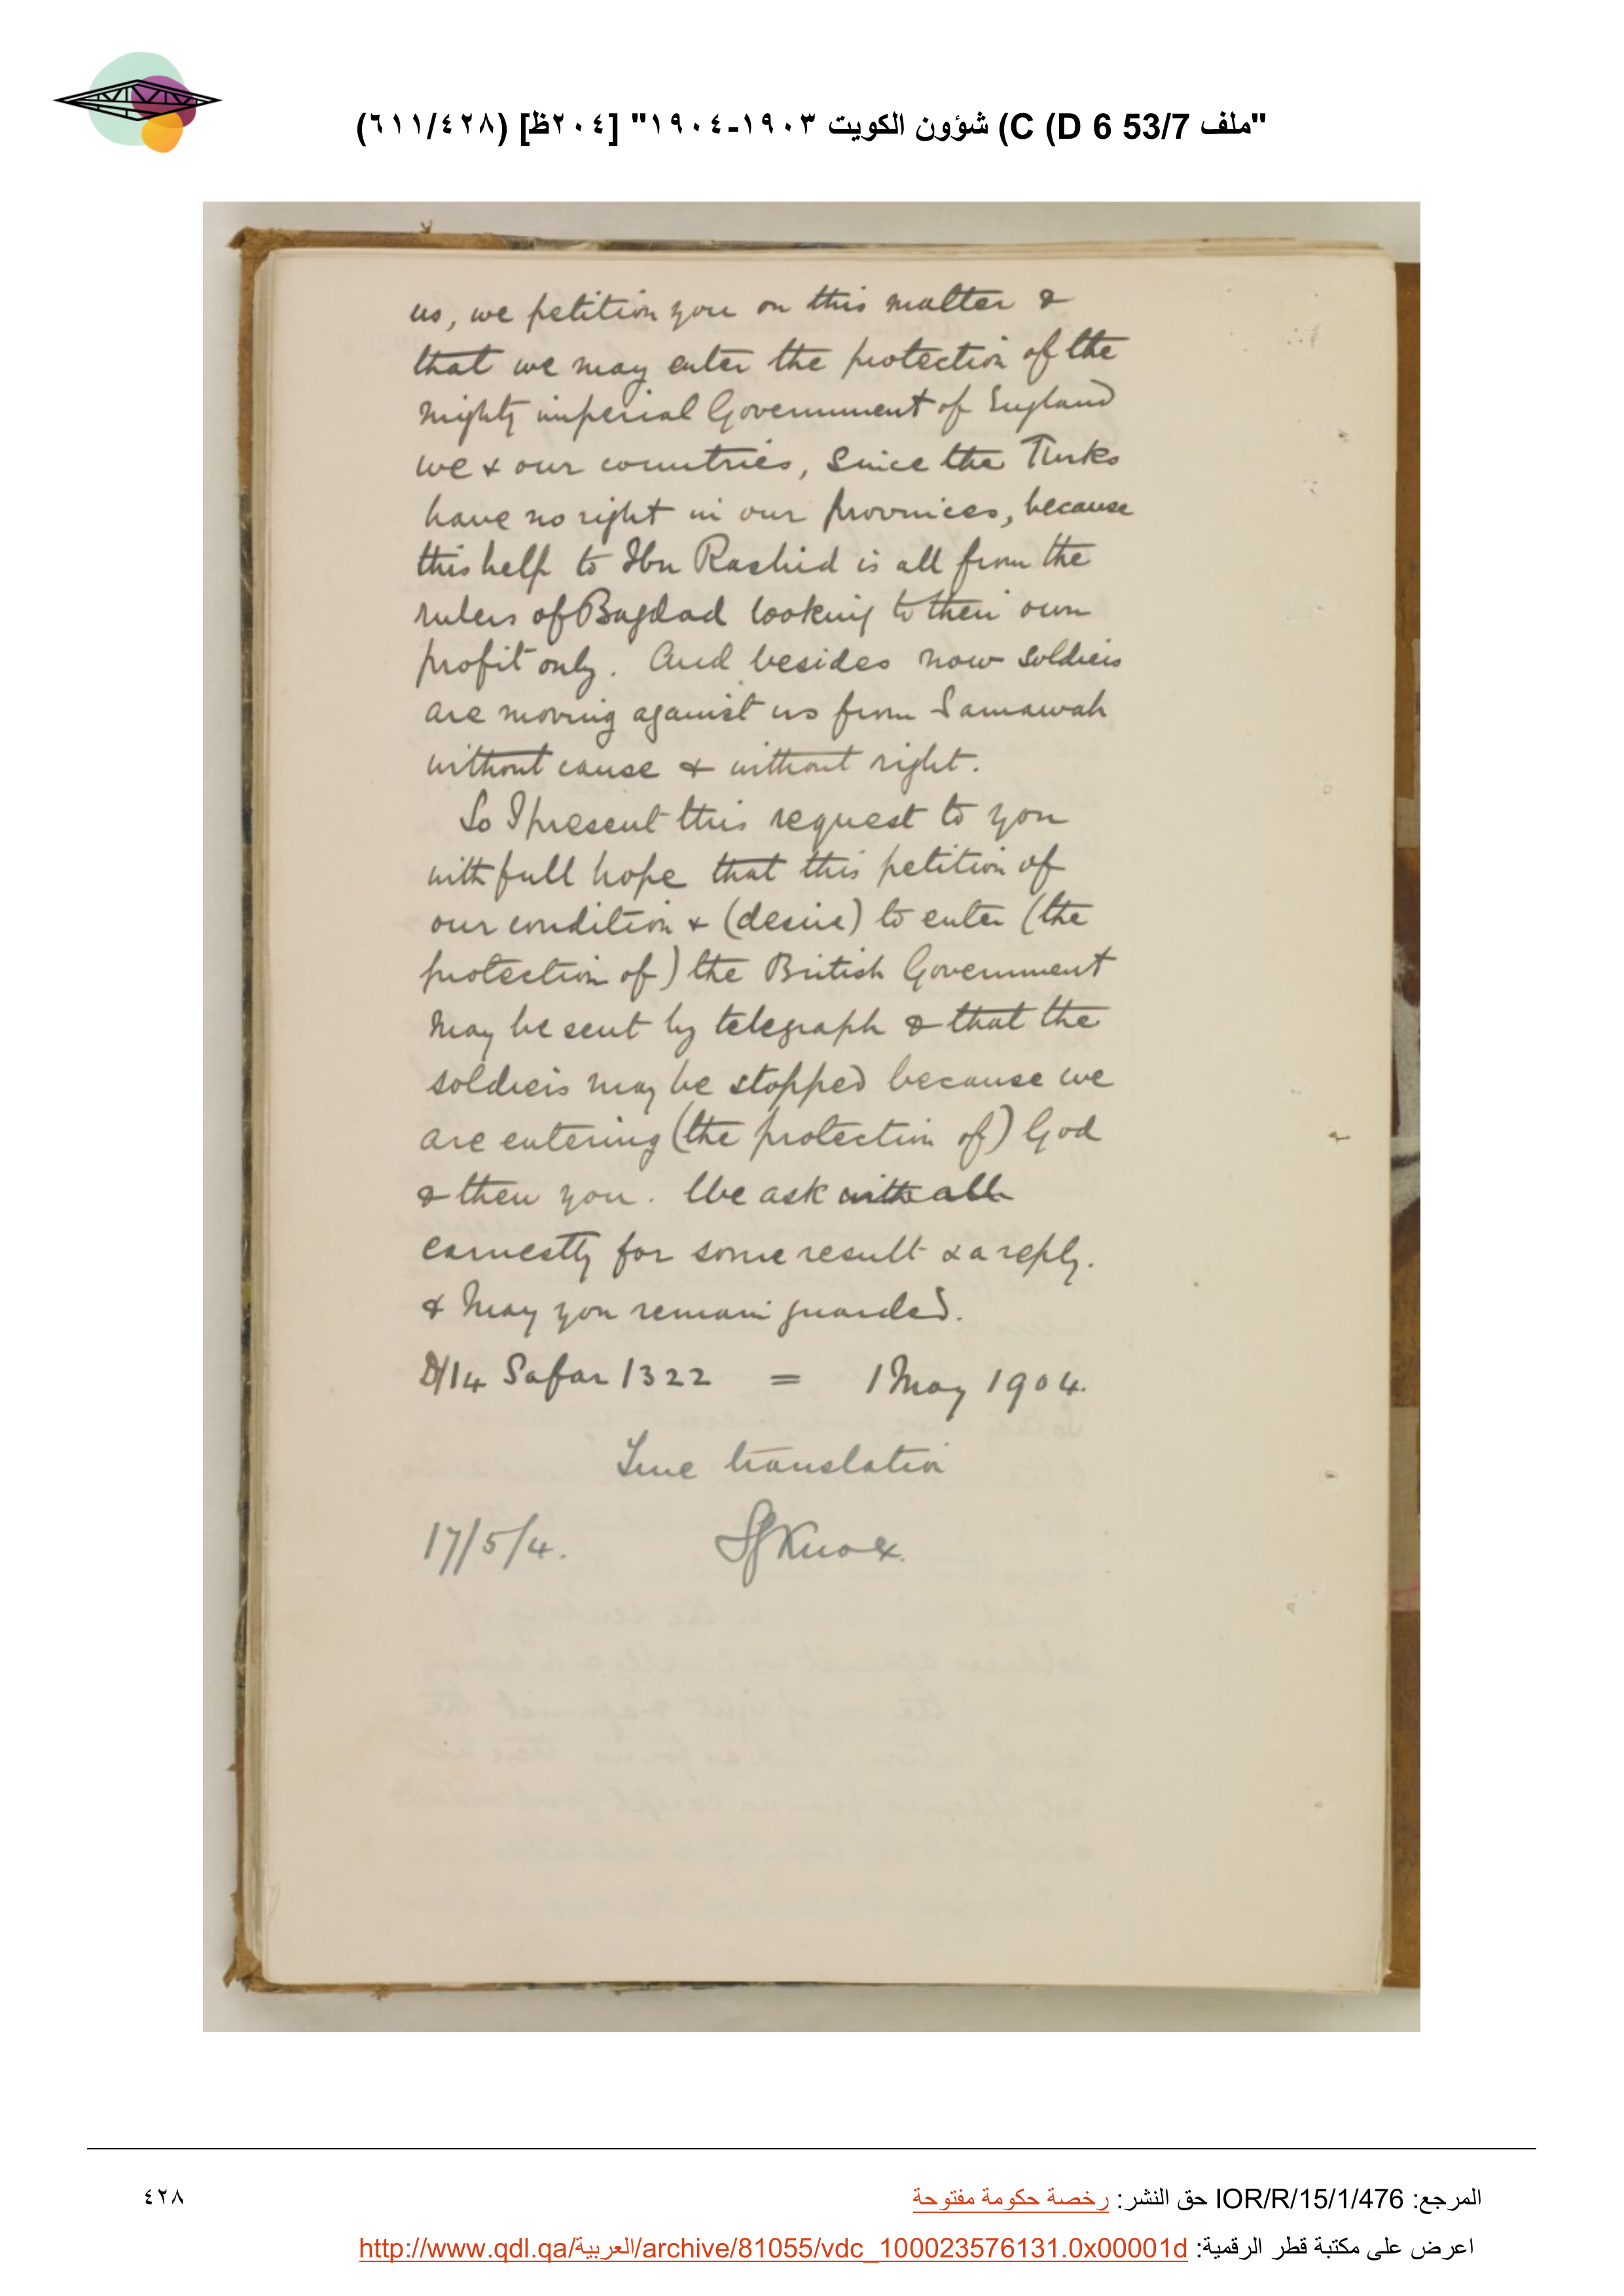 "ملف 53/7 C (D 6) شؤون الكويت ١٩٠٣-١٩٠٤" [٢٠٤ظ] (٦١١/٤٢٨)
us, we petition you on this matter &
that we may enter the protection of the
mighty imperial Government of England
we & our countries, since the Turks
have no right in our provinces, because
this help to Ibn Rashid is all from the
rulers of Bagdad looking to their own
profit only. And besides now soldiers
are moving against us from Samawah
without cause & without right.
So I present this request to you
with full hope that this petition of
our condition & (desire) to enter (the
protection of) the British Government
may be sent by telegraph & that the
soldiers may be stopped because we
are entering (the protection of) God
& then you. We ask with all
earnestly for some result & a reply.
& may you remain guarded.
D/14 Safar 1322 = 1 May 1904.
True translation
17/5/4. SGKnox.
المرجع: IOR/R/15/1/476 حق النشر: رخصة حكومة مفتوحة
٤٢٨
اعرض على مكتبة قطر الرقمية: http://www.qdl.qa/العربية/archive/81055/vdc_100023576131.0x00001d